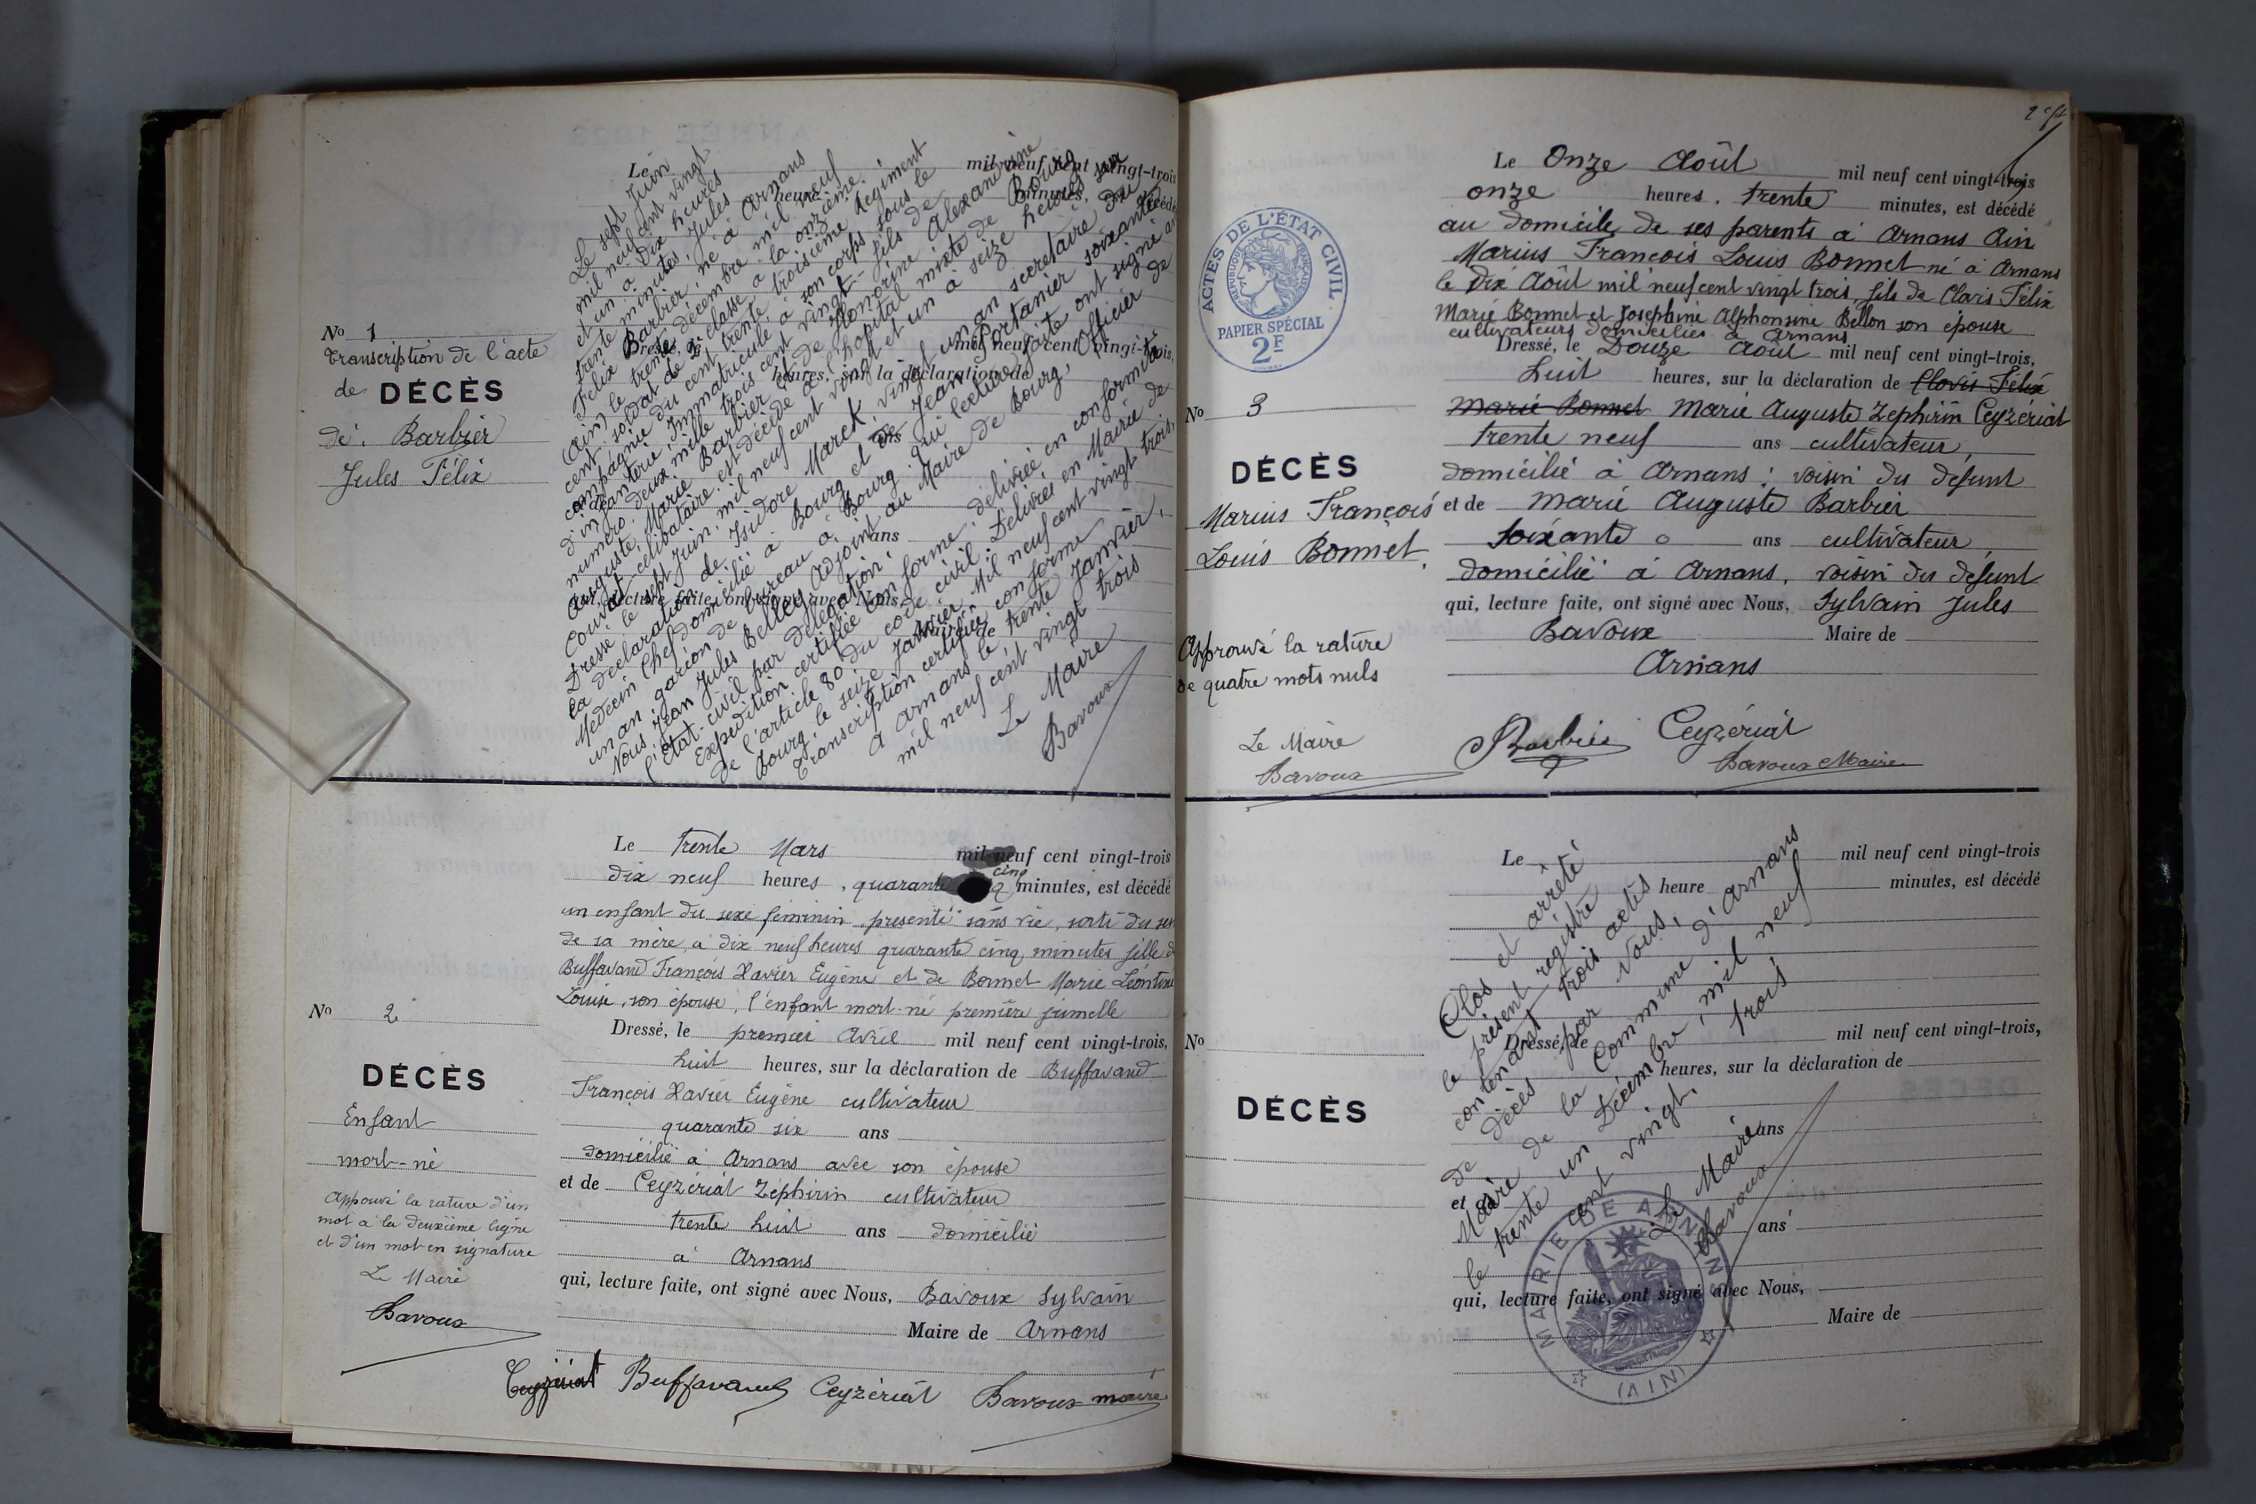 N° 1
Transcription de l'acte
de DÉCÈS
de Barbier
Jules Félix
Le mil neuf cent vingt-trois
heure minutes, est décédé
Dressé, le mil neuf cent vingt-trois,
heures, sur la déclaration de
ans
ans
qui, lecture faite, ont signé avec Nous,
Maire de
Le sept Juin
mil neuf cent vingt
et un à dix heures
trente minutes. Jules
Félix Barbier, né à Arnans
(Ain) le trente décembre mil neuf
cent, soldat de 2e classe à la onzième
compagnie du cent trente troisième Régiment
d'infanterie, immatriculé à son corps sous le
numéro deux mille trois cent vingt - fils de
Auguste Marie Barbier et de Honorine Alexandrine
Convat - célibataire est décédé à l'hopital mixte de Bourg
Dressé le sept juin, mil neuf cent vingt et un à seize heures sur
la déclaration de Isidore Marck, vingt un an secretaire du
Médecin Chef domicilié à Bourg et de Jean Portanier soixante
un an garçon de bureau à Bourg qui lecture faite ont signé avec
Nous Jean Jules Belley Adjoint au Maire de Bourg, Officier de
l'Etat-civil par délégation
Expédition certifiée conforme, délivrée en conformité
de l'article 80 du code civil. Délivrés en Mairie de
Bourg le seize Janvier Mil neuf cent vingt-trois,
Transcription certifiée conforme
à Arnans le trente Janvier,
mil neuf cent vingt trois
Le Maire
Bavoux
N° 2
DÉCÈS
Enfant
mort-né
Appouvé la rature d'un
mot à la deuxième ligne
et d'un mot en signature
Le Maire
Bavoux
Le trente Mars mil neuf cent vingt-trois
dix neuf heures, quarante cinq minutes, est décédé
un enfant du sexe féminin, présenté sans vie, sorti du sein
de sa mère, à dix neuf heures quarante cinq minutes fille de
Buffavand François Xavier Eugène et de Bonnet Marie Léontine
Louise, son épouse, l'enfant mort-né première jumelle
Dressé, le premier Avril mil neuf cent vingt-trois,
huit heures, sur la déclaration de Buffavand
François Xavier Eugène cultivateur
quarante six ans
domicilié à Arnans avec son épouse
et de Ceyzériat Zéphirin cultivateur
trente huit ans domicilié
à Arnans
qui, lecture faite, ont signé avec Nous, Bavoux Sylvain
Maire de Arnans
Ceyzériat Buffavand Ceyzériat Bavoux maire
ACTES DE L'ÉTAT CIVIL
REPUBLIQUE FRANÇAISE
PAPIER SPÉCIAL
2F
N° 3
DÉCÈS
Marius François
Louis Bonnet.
Approuvé la rature
de quatre mots nuls
Le Maire
Bavoux
Le Onze Août mil neuf cent vingt-trois
onze heures, trente minutes, est décédé
au domicile de ses parents à Arnans Ain
Marius François Louis Bonnet né à Arnans
le dix Août mil neuf cent vingt trois, fils de Clovis Félix
Marie Bonnet et Joséphine Alphonsine Bellon son épouse
cultivateurs domiciliés à Arnans
Dressé, le Douze Août mil neuf cent vingt-trois,
huit heures, sur la déclaration de Clovis Félix
Marie Bonnet Marie Auguste Zephirin Ceyzeriat
trente neuf ans cultivateur,
domicilié à Arnans, voisin du défunt
et de Marie Auguste Barbier
soixante ans cultivateur,
domicilié à Arnans, voisin du défunt
qui, lecture faite, ont signé avec Nous, Sylvain Jules
Bavoux Maire de
Arnans
Barbier Ceyzériat
Bavoux Maire
N°
DÉCÈS
Le mil neuf cent vingt-trois
heure minutes, est décédé
Dressé, le mil neuf cent vingt-trois,
heures, sur la déclaration de
ans
et de
ans
qui, lecture faite, ont signé avec Nous,
Maire de
Clos et arrêté
le présent registre
contenant trois actes
de décès par Nous,
Maire de la Commune d'Arnans
le trente un Décembre, mil neuf
cent vingt trois
Le Maire
Bavoux
MAIRIE DE ARNANS
(AIN)